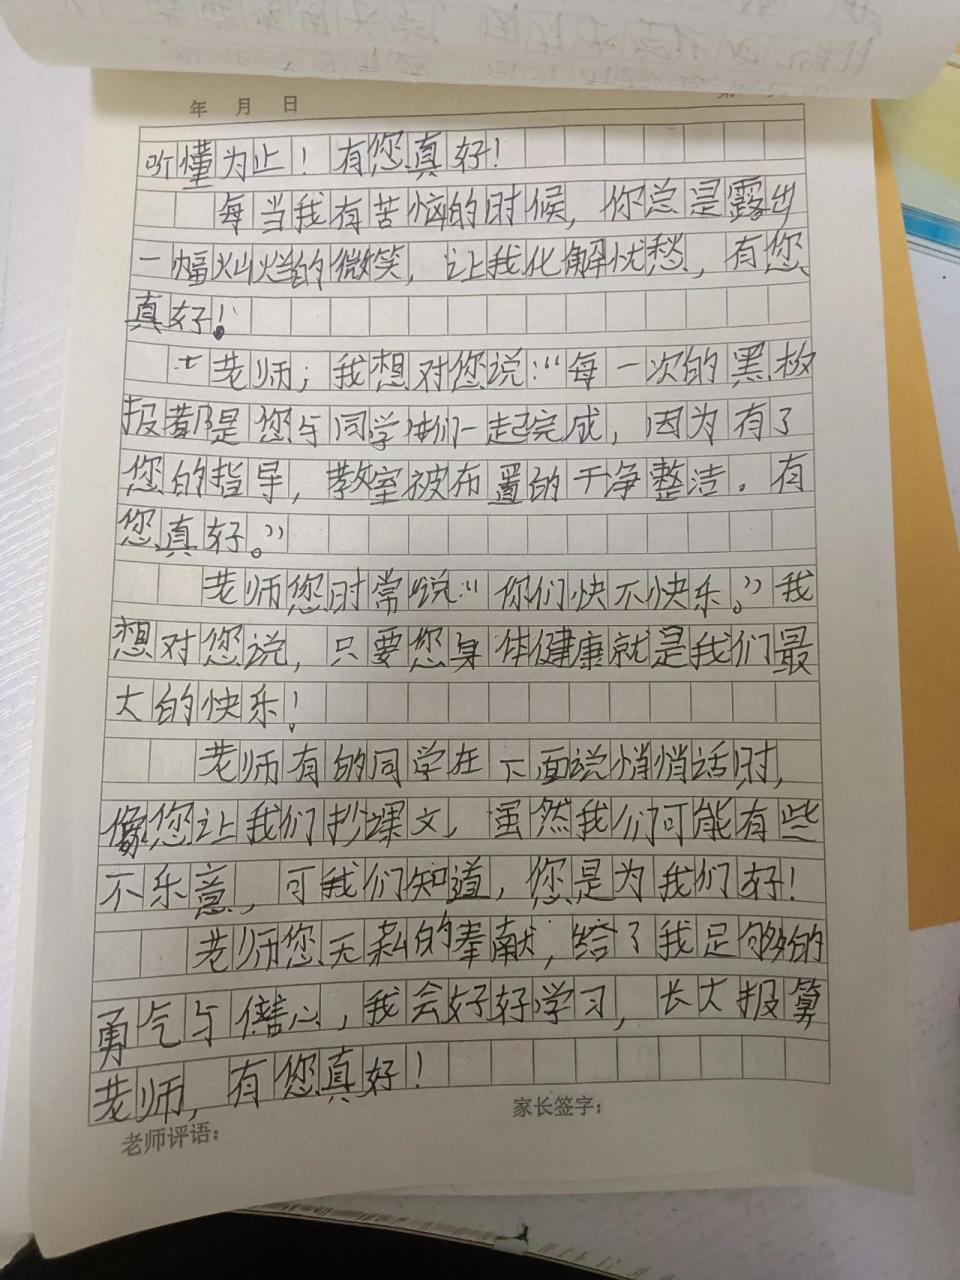 年 月 日
听懂为止！有您真好！
每当我有苦恼的时候，你总是露出
一幅灿烂的微笑，让我化解忧愁，有您
真好！
老师；我想对您说：“每一次的黑板
报都是您与同学们一起完成，因为有了
您的指导，教室被布置的干净整洁。有
您真好。”
老师您时常说“你们快不快乐。”我
想对您说，只要您身体健康就是我们最
大的快乐！
老师有的同学在下面说悄悄话时，
像您让我们抄课文，虽然我们可能有些
不乐意，可我们知道，您是为我们好！
老师您无私的奉献，给了我足够的
勇气与信心，我会好好学习，长大报答
老师，有您真好！
家长签字：
老师评语：